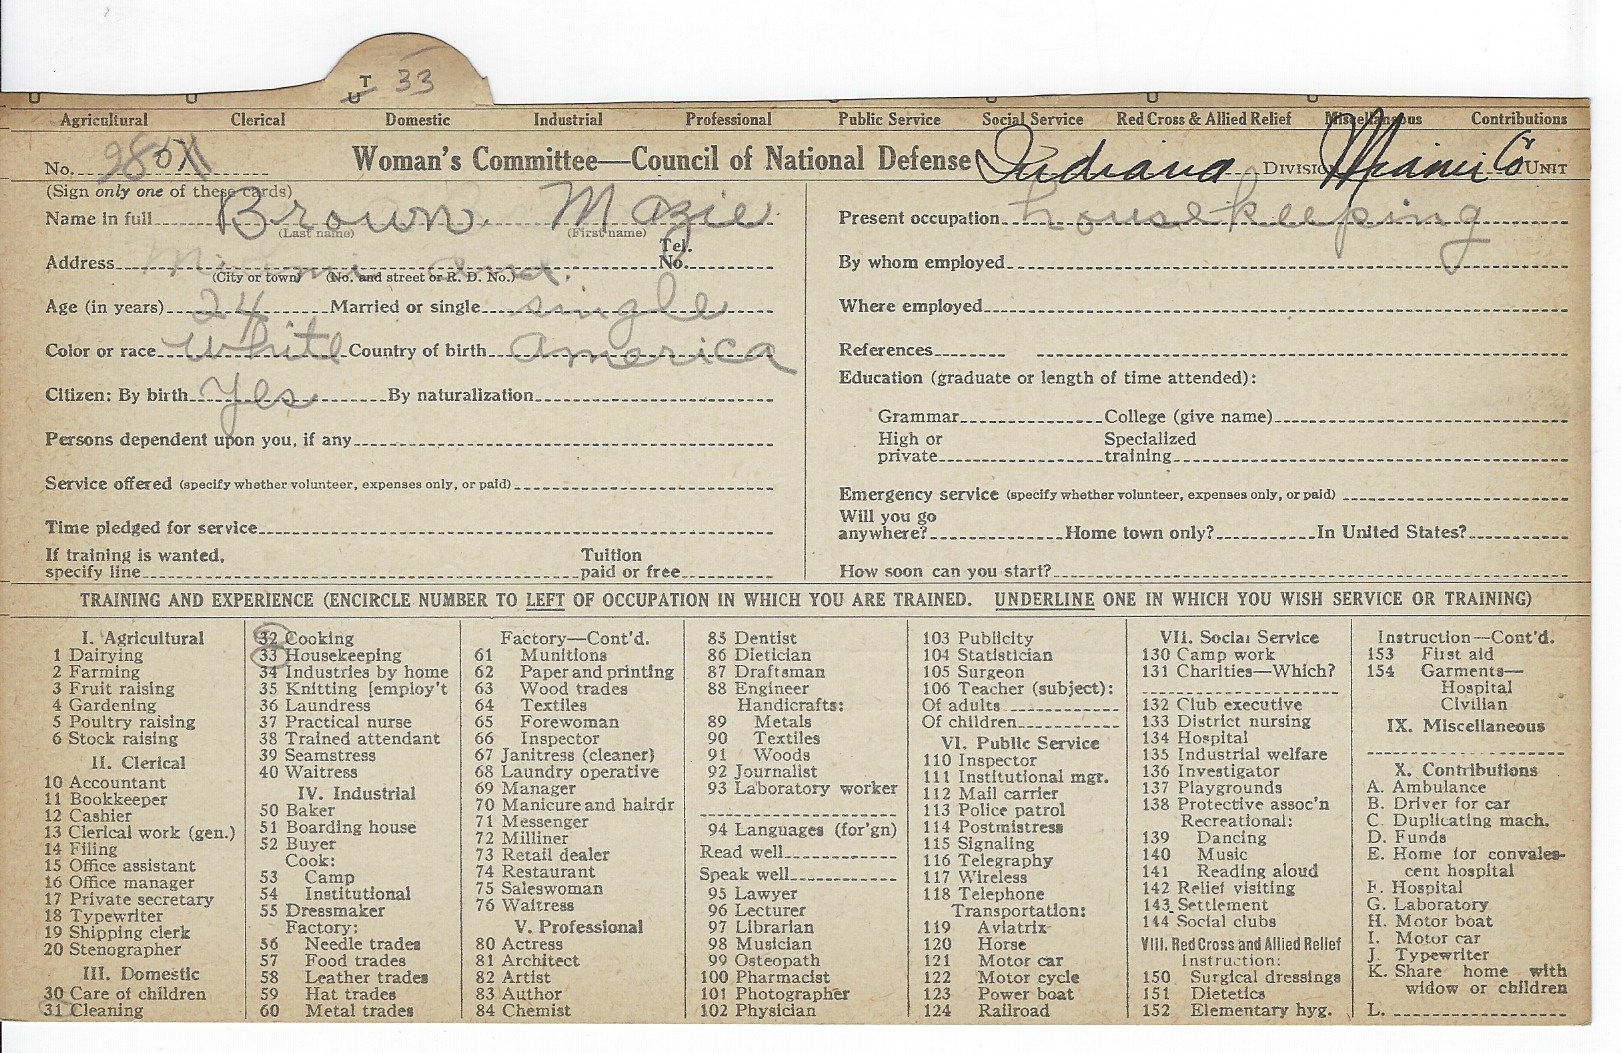 T 33
U
Agricultural Clerical Domestic Industrial Professional Public Service Social Service Red Cross & Allied Relief Miscellaneous Contributions
No. Woman's Committee—Council of National Defense Indiana DIVISION Miami Co UNIT
(Sign only one of these cards)
Name in full Brown Mazie
(Last name) (First name)
Address Miami Ind. Tel. No.
(City or town) (No. and street or R. D. No.)
Age (in years) 24 Married or single single
Color or race White Country of birth America
Citizen: By birth Yes By naturalization
Persons dependent upon you, if any
Service offered (specify whether volunteer, expenses only, or paid)
Time pledged for service
If training is wanted, specify line Tuition paid or free
Present occupation housekeeping
By whom employed
Where employed
References
Education (graduate or length of time attended):
Grammar College (give name)
High or private Specialized training
Emergency service (specify whether volunteer, expenses only, or paid)
Will you go anywhere? Home town only? In United States?
How soon can you start?
TRAINING AND EXPERIENCE (ENCIRCLE NUMBER TO LEFT OF OCCUPATION IN WHICH YOU ARE TRAINED. UNDERLINE ONE IN WHICH YOU WISH SERVICE OR TRAINING)
I. Agricultural
1 Dairying
2 Farming
3 Fruit raising
4 Gardening
5 Poultry raising
6 Stock raising
II. Clerical
10 Accountant
11 Bookkeeper
12 Cashier
13 Clerical work (gen.)
14 Filing
15 Office assistant
16 Office manager
17 Private secretary
18 Typewriter
19 Shipping clerk
20 Stenographer
III. Domestic
30 Care of children
31 Cleaning
32 Cooking
33 Housekeeping
34 Industries by home
35 Knitting [employ't
36 Laundress
37 Practical nurse
38 Trained attendant
39 Seamstress
40 Waitress
IV. Industrial
50 Baker
51 Boarding house
52 Buyer
Cook:
53 Camp
54 Institutional
55 Dressmaker
Factory:
56 Needle trades
57 Food trades
58 Leather trades
59 Hat trades
60 Metal trades
Factory—Cont'd.
61 Munitions
62 Paper and printing
63 Wood trades
64 Textiles
65 Forewoman
66 Inspector
67 Janitress (cleaner)
68 Laundry operative
69 Manager
70 Manicure and hairdr
71 Messenger
72 Milliner
73 Retail dealer
74 Restaurant
75 Saleswoman
76 Waitress
V. Professional
80 Actress
81 Architect
82 Artist
83 Author
84 Chemist
85 Dentist
86 Dietician
87 Draftsman
88 Engineer
Handicrafts:
89 Metals
90 Textiles
91 Woods
92 Journalist
93 Laboratory worker
94 Languages (for'gn)
Read well
Speak well
95 Lawyer
96 Lecturer
97 Librarian
98 Musician
99 Osteopath
100 Pharmacist
101 Photographer
102 Physician
103 Publicity
104 Statistician
105 Surgeon
106 Teacher (subject):
Of adults
Of children
VI. Public Service
110 Inspector
111 Institutional mgr.
112 Mail carrier
113 Police patrol
114 Postmistress
115 Signaling
116 Telegraphy
117 Wireless
118 Telephone
Transportation:
119 Aviatrix
120 Horse
121 Motor car
122 Motor cycle
123 Power boat
124 Railroad
VII. Social Service
130 Camp work
131 Charities—Which?
132 Club executive
133 District nursing
134 Hospital
135 Industrial welfare
136 Investigator
137 Playgrounds
138 Protective assoc'n
Recreational:
139 Dancing
140 Music
141 Reading aloud
142 Relief visiting
143 Settlement
144 Social clubs
VIII. Red Cross and Allied Relief
Instruction:
150 Surgical dressings
151 Dietetics
152 Elementary hyg.
Instruction—Cont'd.
153 First aid
154 Garments—
Hospital
Civilian
IX. Miscellaneous
X. Contributions
A. Ambulance
B. Driver for car
C. Duplicating mach.
D. Funds
E. Home for convales-
cent hospital
F. Hospital
G. Laboratory
H. Motor boat
I. Motor car
J. Typewriter
K. Share home with
widow or children
L.